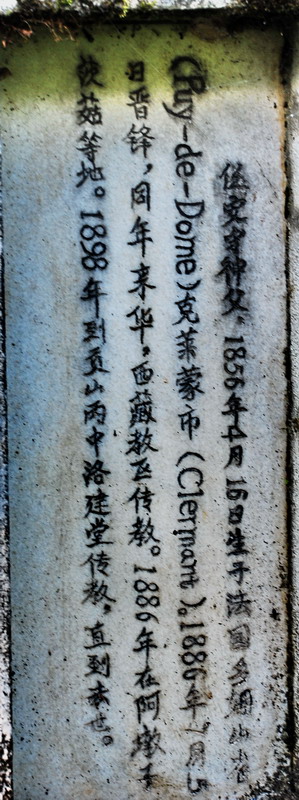 任安守神父，1856年4月16日生于法国多姆山省
(Puy-de-Dome)克莱蒙市(Clermont)。1886年7月5
日晋铎，同年来华。西藏教区传教。1886年在阿墩子
茨菇等地。1898年到贡山丙中洛建堂传教，直到去世。